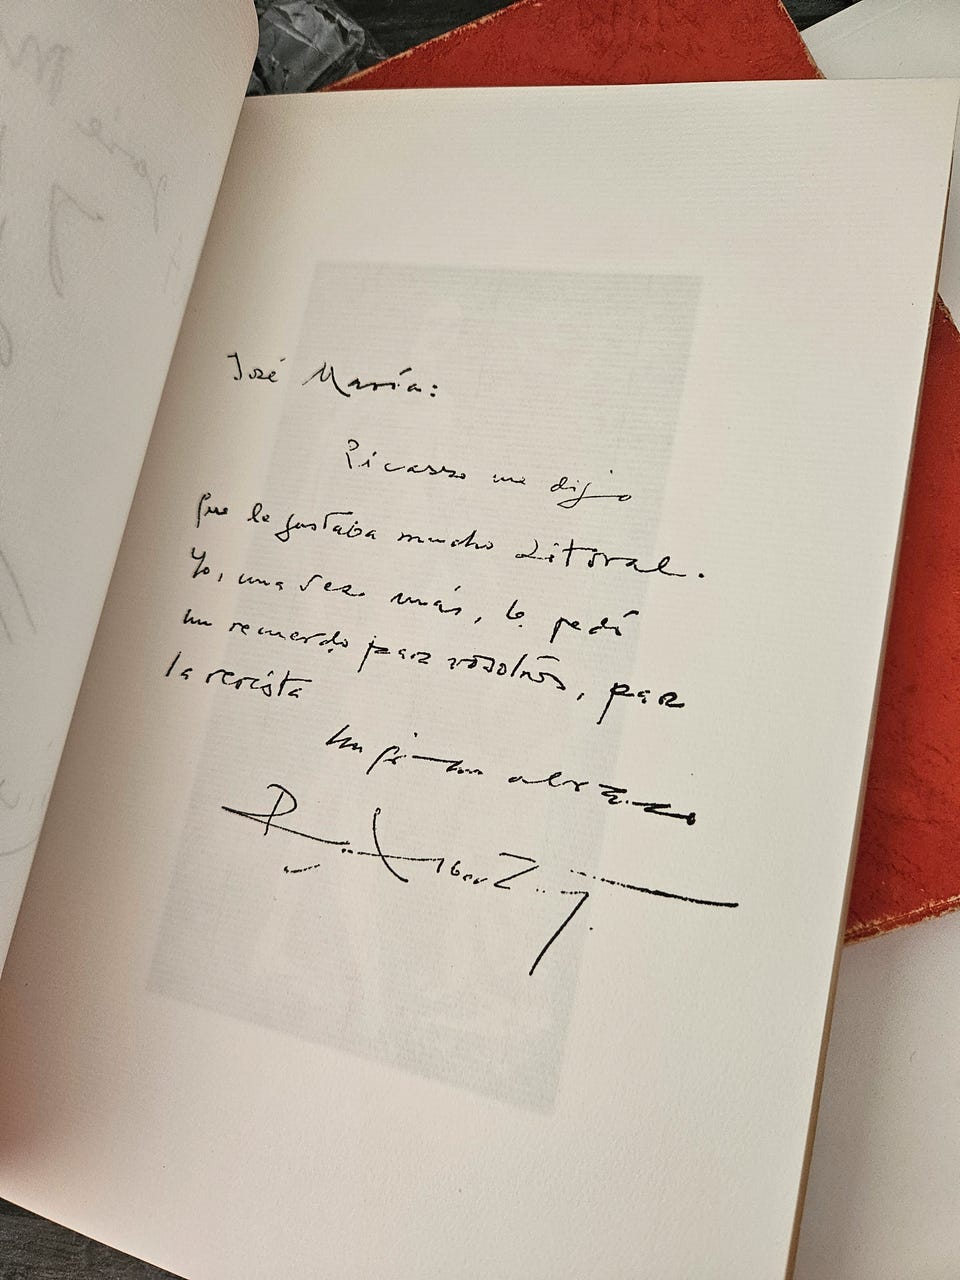 José María:
Picasso me dijo
que le gustaba mucho Litoral.
Yo, una vez más, le pedí
un recuerdo para vosotros, para
la revista
Un gran abrazo
Rafael Alberti